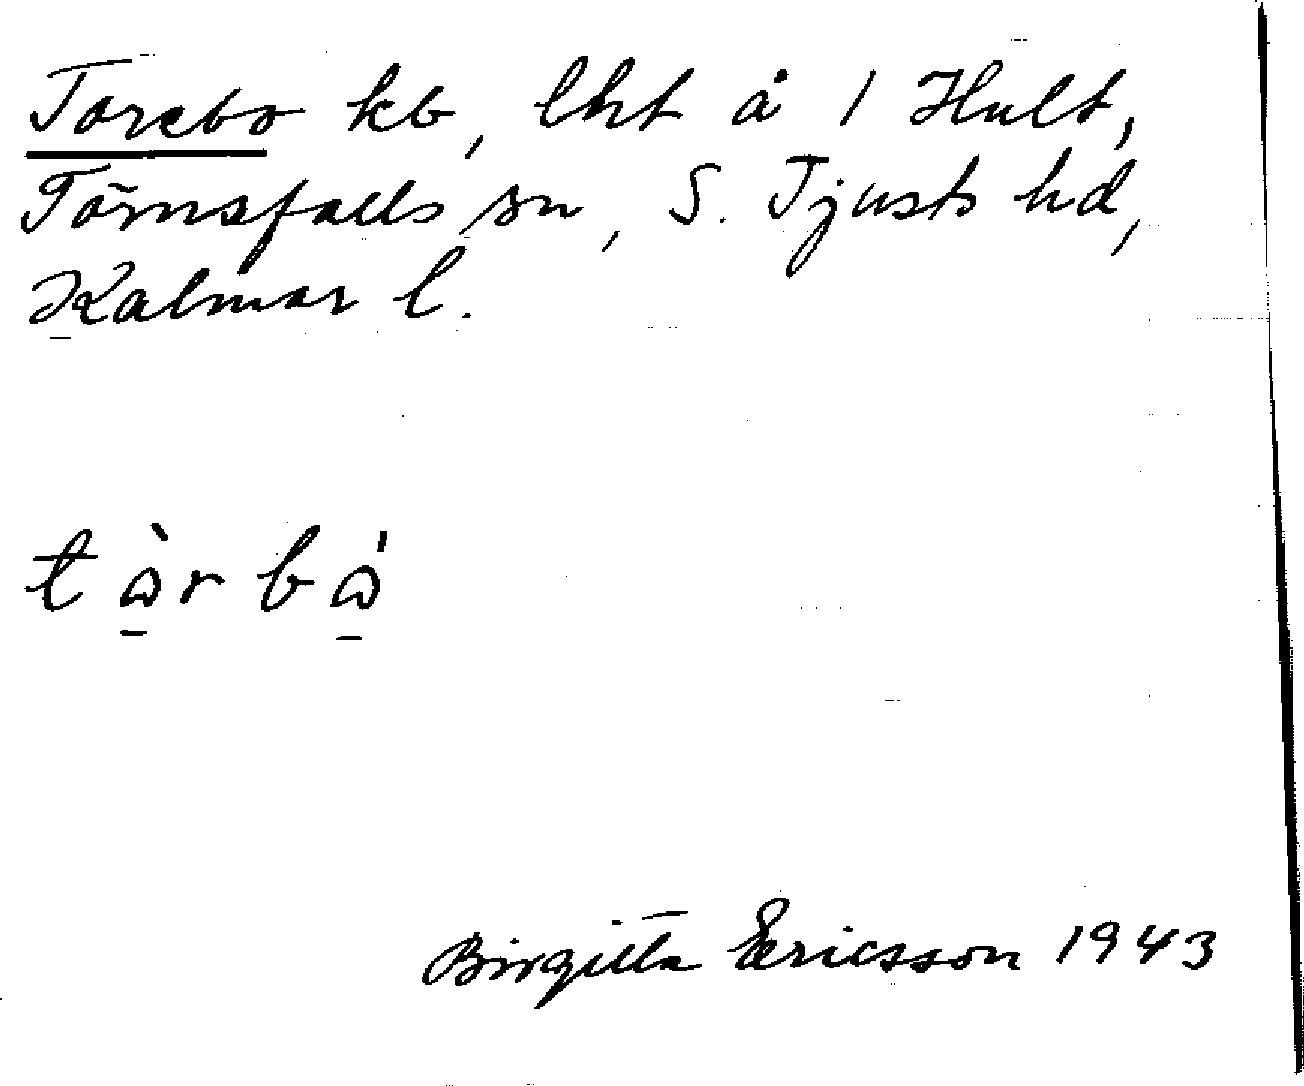 Torebo kb, lht å 1 Hult,
Törnsfalls sn, S. Tjusts hd,
Kalmar l.
tὼ̲r bω̲̍
Birgitta Ericsson 1943